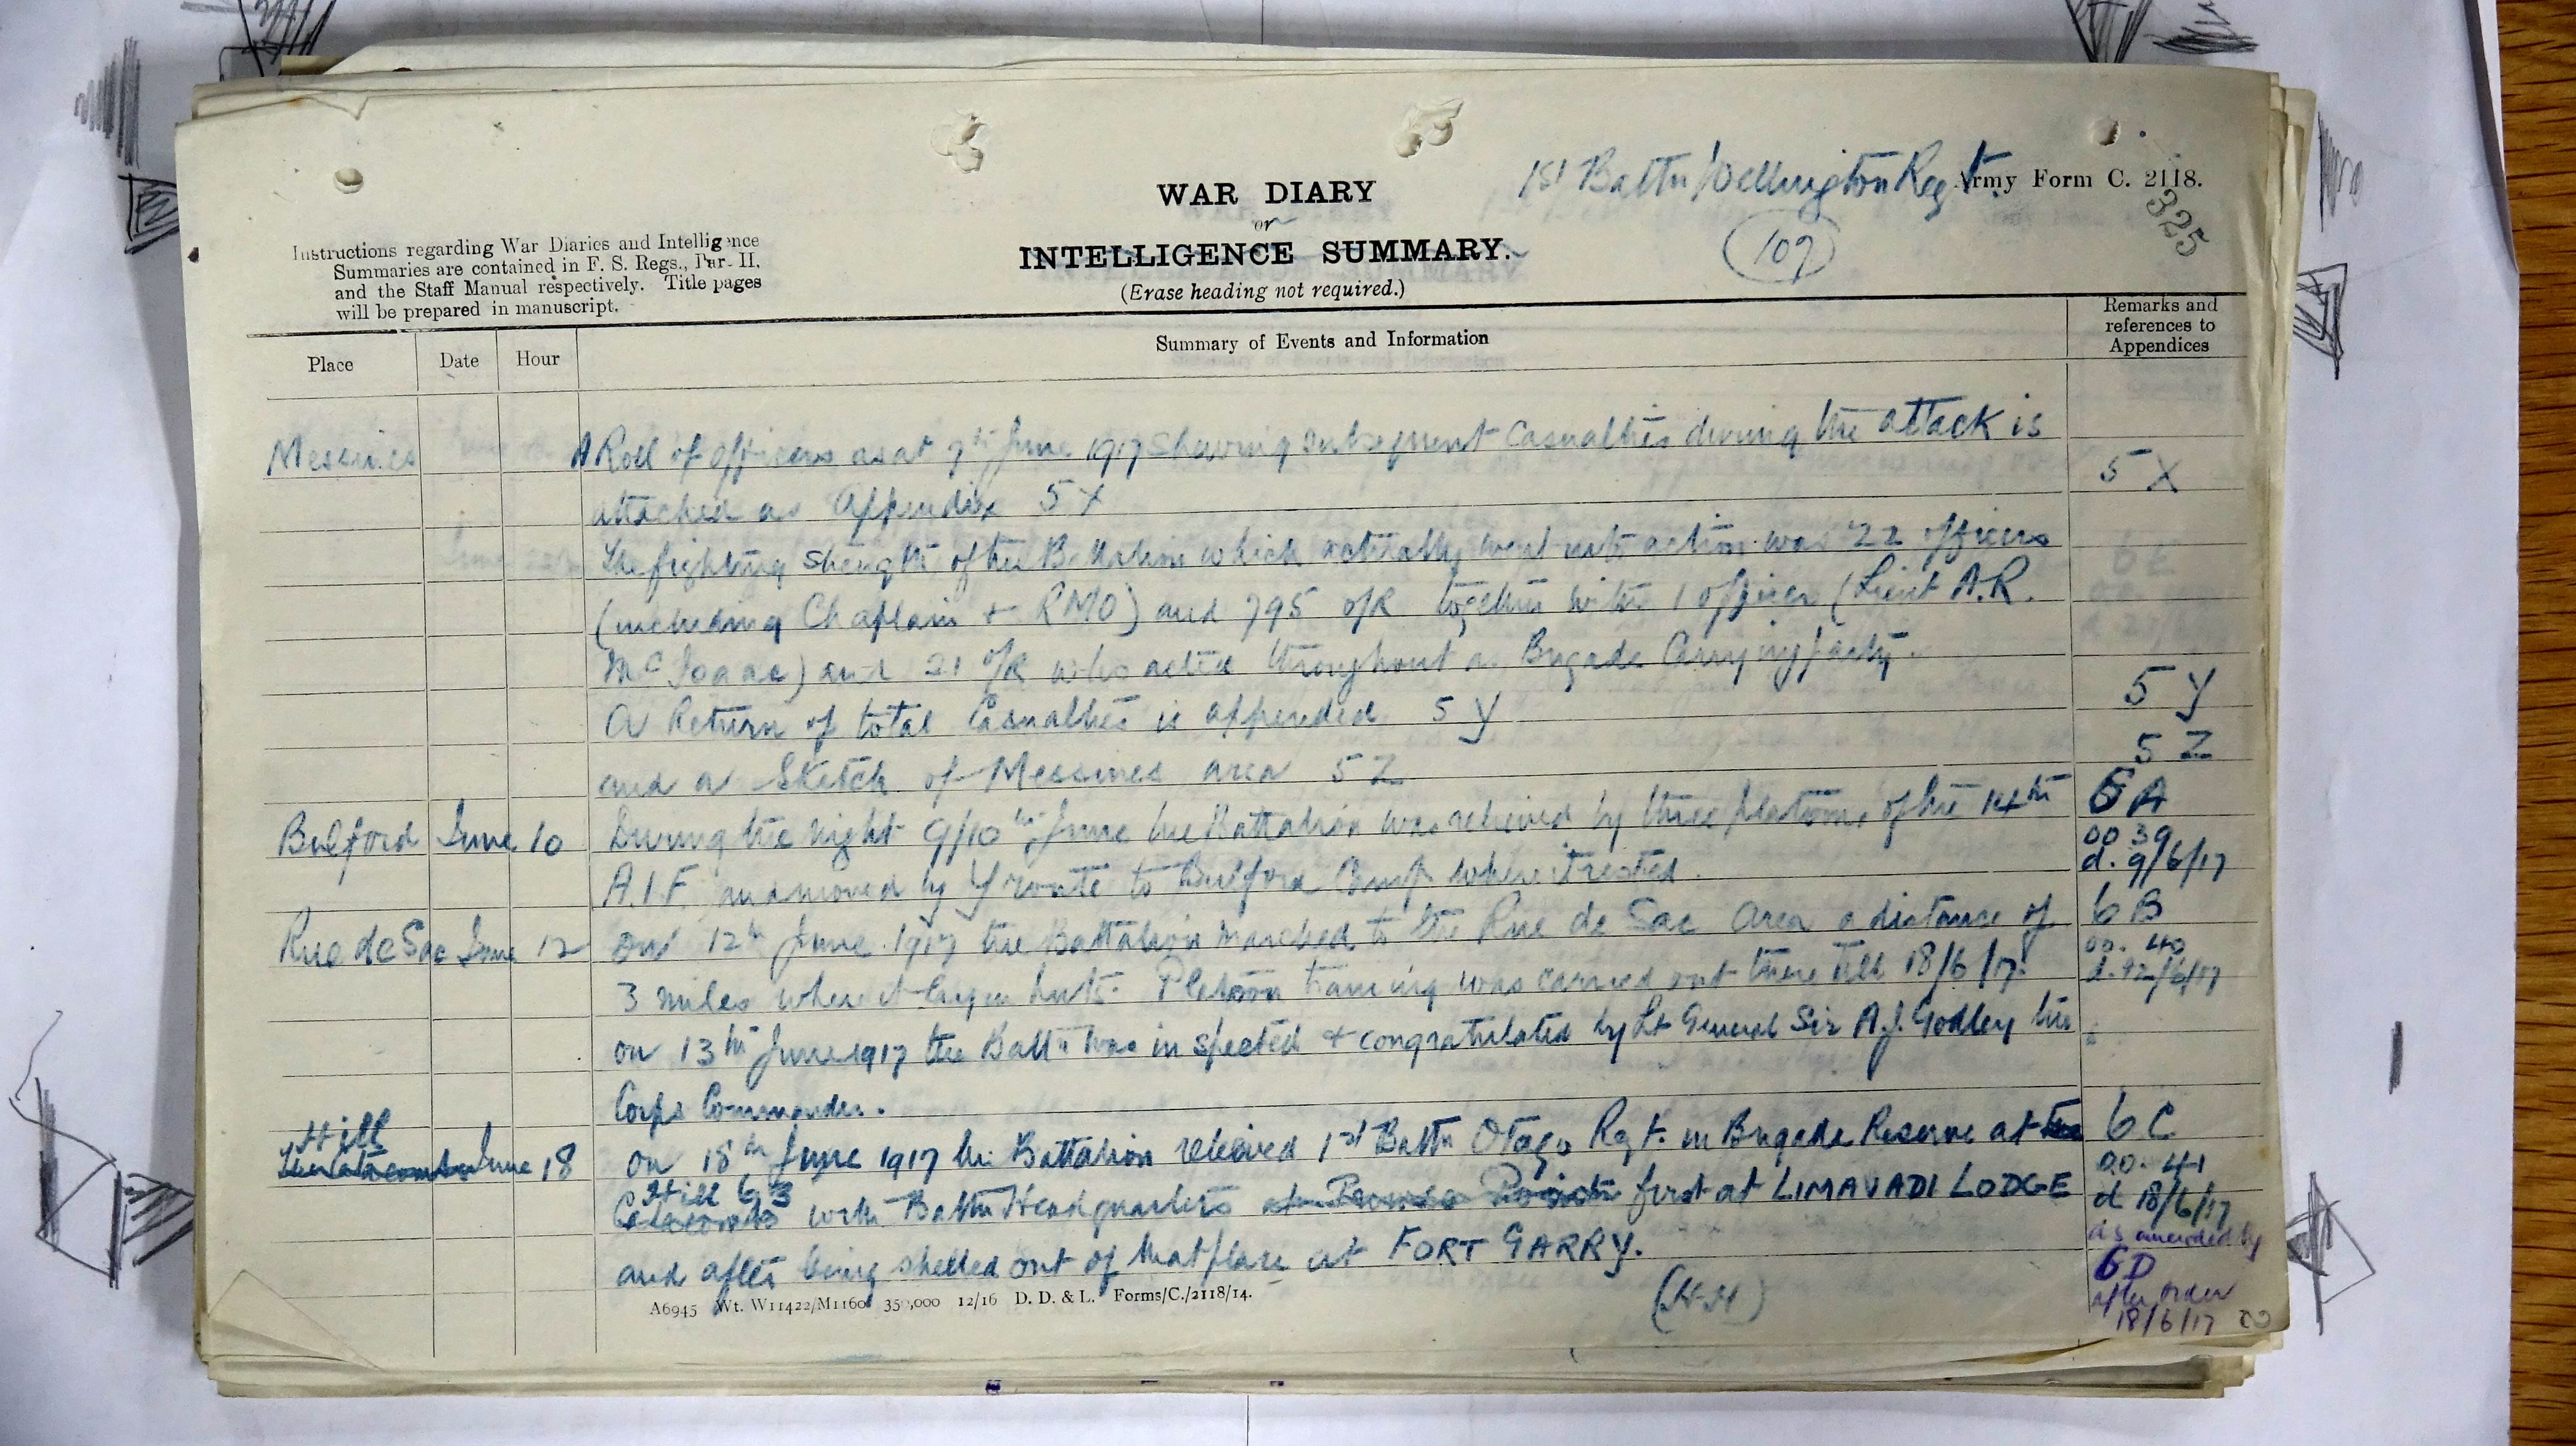 1st Battn Wellington Regt.
Army Form C. 2118.
325
109
WAR DIARY
or
INTELLIGENCE SUMMARY.
(Erase heading not required.)
Instructions regarding War Diaries and Intelligence
Summaries are contained in F. S. Regs., Par. II.
and the Staff Manual respectively. Title pages
will be prepared in manuscript.
Place Date Hour Summary of Events and Information Remarks and
references to
Appendices
Messines A Roll of officers as at 7th June 1917 showing subsequent Casualties during the attack is
attached as Appendix 5 X 5 X
The fighting strength of the Battalion which actually went into action was 22 officers
(including Chaplain + RMO) and 795 o/R together with 1 officer (Lieut A.R.
McIsaac) and 21 o/R who acted throughout as Brigade Carrying party.
A Return of total Casualties is appended 5 Y 5 Y
and a Sketch of Messines area 5 Z 5 Z
Bulford June 10 During the night 9/10th June the Battalion was relieved by three platoons of the 14th 6 A
OO 39
A.I.F. and moved by Y route to Bulford Camp where it rested. d. 9/6/17
Rue de Sac June 12 On 12th June 1917 the Battalion marched to the Rue de Sac Area a distance of 6 B
OO. 40
3 miles where it lay in huts. Platoon training was carried out there till 18/6/17. d. 12/6/17
on 13th June 1917 the Battn was inspected + congratulated by Lt General Sir A.J. Godley the
Corps Commander.
Hill
June 18 on 18th June 1917 the Battalion relieved 1st Battn Otago Regt. in Brigade Reserve at the 6 C
OO. 41
Hill 63
Catacombs with Battn Headquarters at first at LIMAVADI LODGE d 18/6/17
and after being shelled out of that place at FORT GARRY. as amended by
6D
after order
18/6/17
A6945 Wt. W11422/M1160 350,000 12/16 D. D. & L. Forms/C./2118/14.